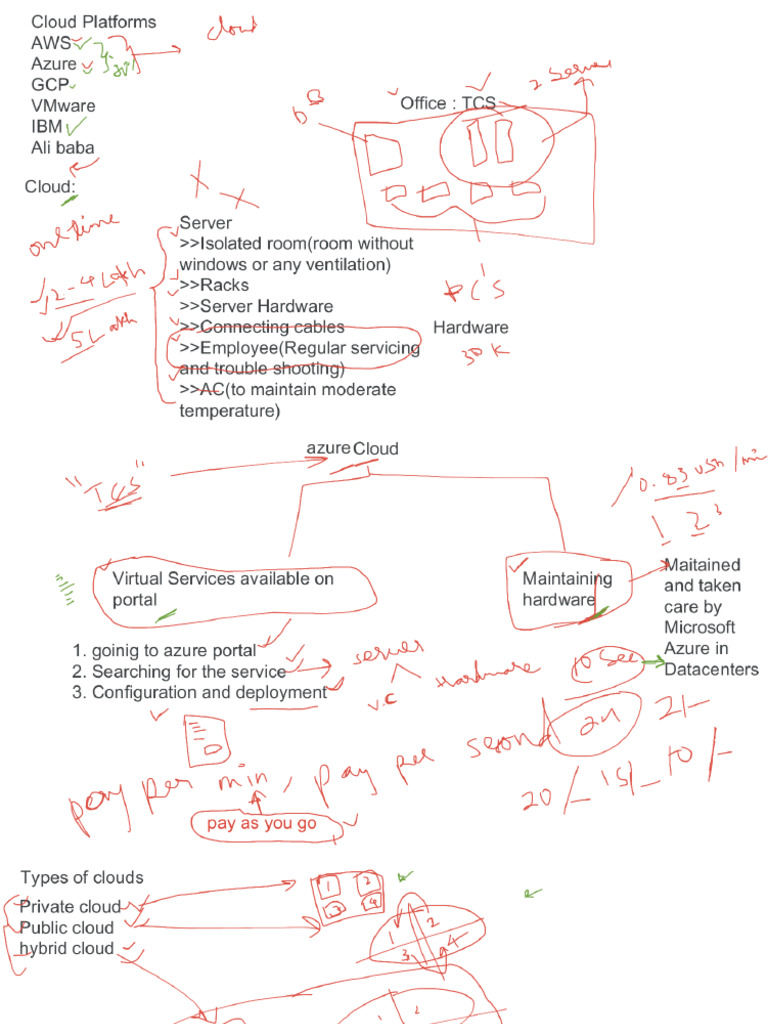 Cloud Platforms
AWS
Azure
GCP
VMware
IBM
Ali baba
cloud
2 Server
Office : TCS
Cloud:
one time
2-4 Lakh
5 Lakh
Server
>>Isolated room(room without
windows or any ventilation)
>>Racks
>>Server Hardware
>>Connecting cables
>>Employee(Regular servicing
and trouble shooting)
>>AC(to maintain moderate
temperature)
PC's
Hardware
30 K
azure Cloud
"TCS"
0.83 USD/min
1 2 3
Virtual Services available on
portal
Maintaining
hardware
Maitained
and taken
care by
Microsoft
Azure in
Datacenters
1. goinig to azure portal
2. Searching for the service
3. Configuration and deployment
server
V.C
Hardware
10 sec
pay per min, pay per second
24
2/-
20/- 15/- 10/-
pay as you go
Types of clouds
Private cloud
Public cloud
hybrid cloud
1 2
3 4
1 2
3 4
1